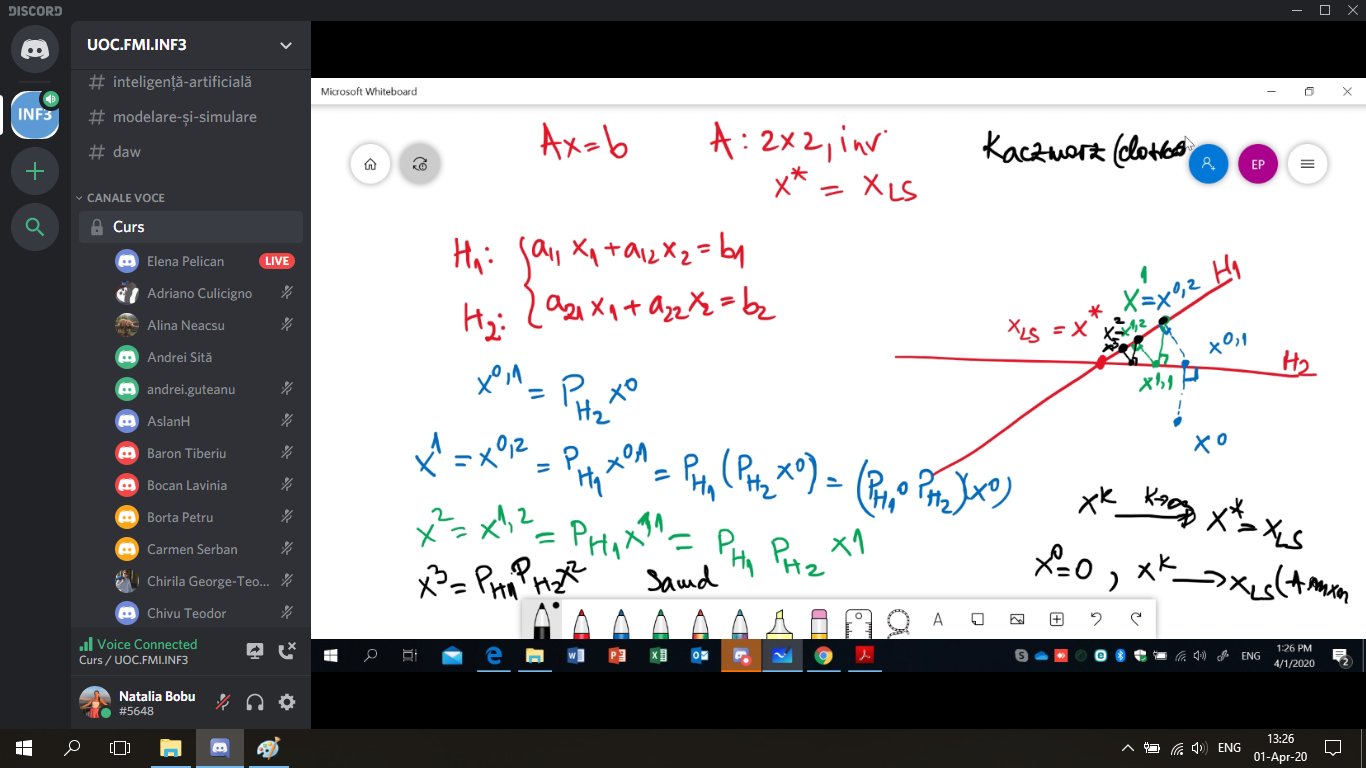 DISCORD
UOC.FMI.INF3
# inteligență-artificială
# modelare-și-simulare
# daw
CANALE VOCE
Curs
Elena Pelican LIVE
Adriano Culicigno
Alina Neacsu
Andrei Sită
andrei.guteanu
AslanH
Baron Tiberiu
Bocan Lavinia
Borta Petru
Carmen Serban
Chirila George-Teo...
Chivu Teodor
Voice Connected
Curs / UOC.FMI.INF3
Natalia Bobu
#5648
INF3
Microsoft Whiteboard
Ax=b A: 2x2, inv
Kaczmarz
EP
x* = x_LS
H₁: a₁₁ x₁ + a₁₂ x₂ = b₁
H₂: a₂₁ x₁ + a₂₂ x₂ = b₂
H₁
x¹ = x^0,2
x_LS = x*
x^1,2
x^0,1
H₂
x^1,1
x⁰
x^0,1 = P_H₂ x⁰
x¹ = x^0,2 = P_H₁ x^0,1 = P_H₁ (P_H₂ x⁰) = (P_H₁ o P_H₂)(x⁰)
x² = x^1,2 = P_H₁ x^1,1 = P_H₁ P_H₂ x¹
x³ = P_H₁ P_H₂ x²
x^k → x* = x_LS
x⁰ = 0, x^k → x_LS (A mxn
ENG
1:26 PM
4/1/2020
2
ENG
13:26
01-Apr-20